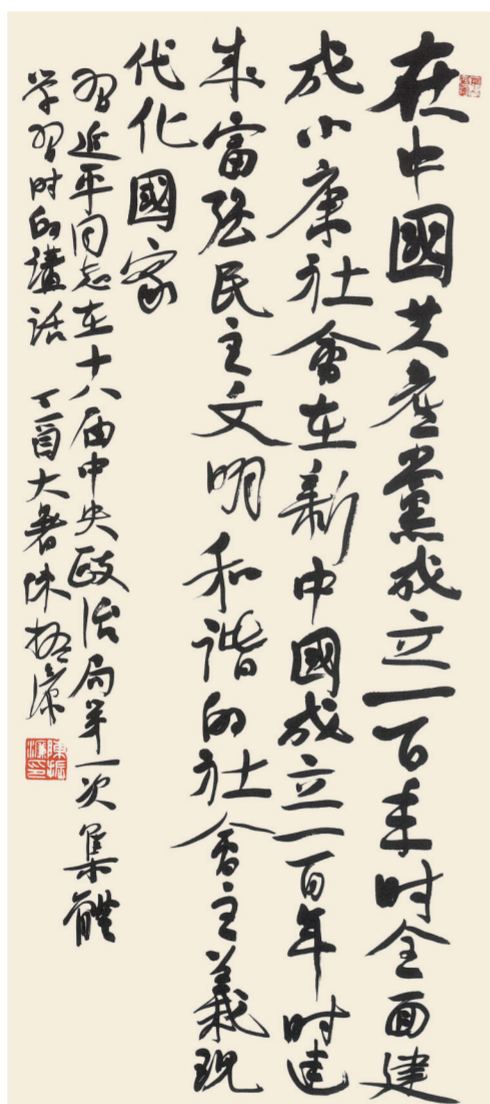 在中國共產黨成立一百年时全面建
成小康社會在新中國成立一百年时建
成富强民主文明和谐的社會主義現
代化國家
習近平同志在十八届中央政治局第一次集體
学習时的講话 丁酉大暑陈振濂
陳振濂印